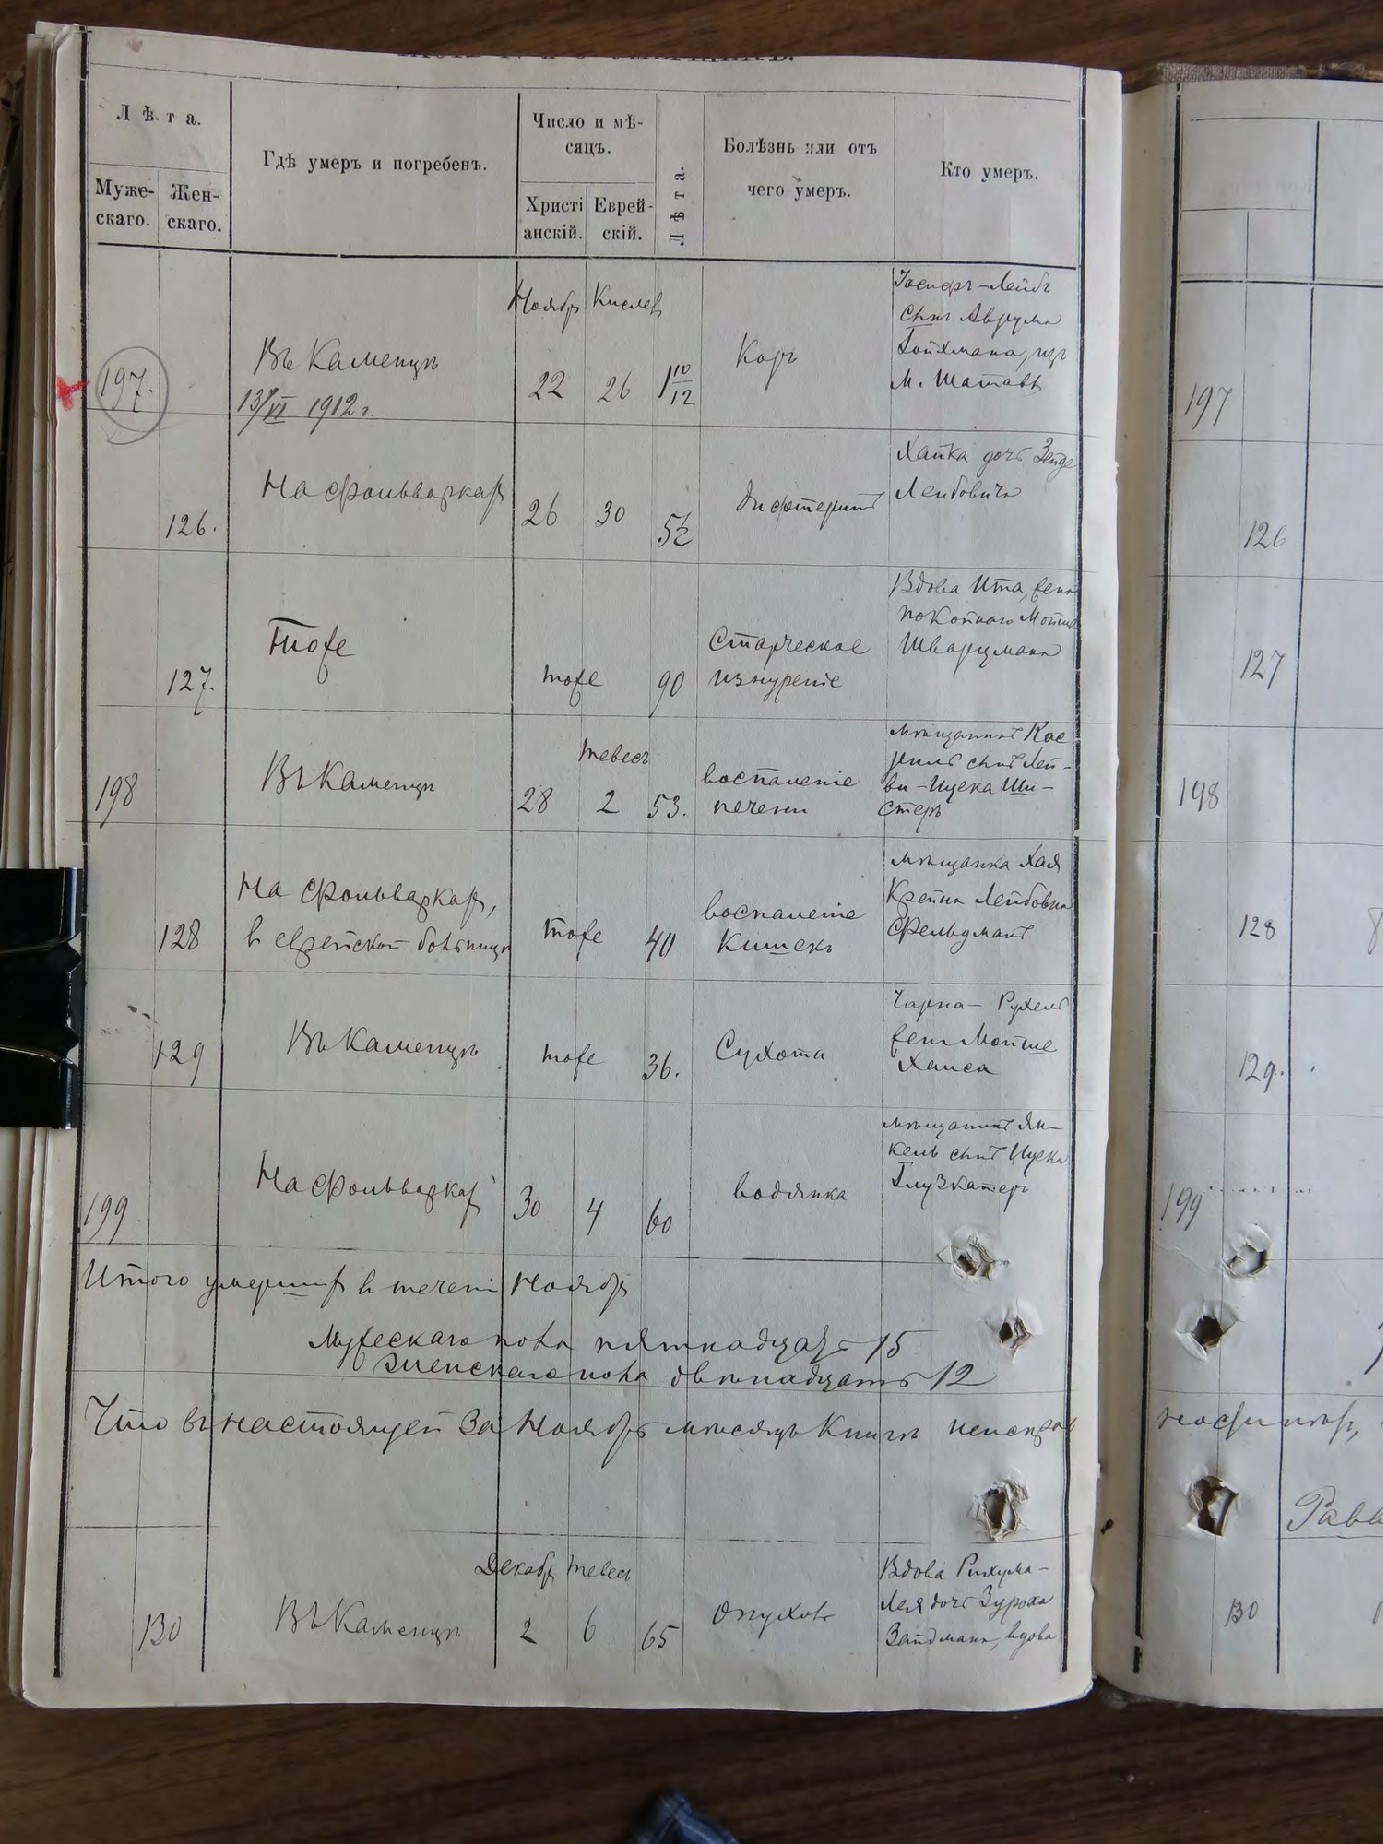 Лѣта.
Муже-
скаго.
Жен-
скаго.
Гдѣ умеръ и погребенъ.
Число и мѣ-
сяцъ.
Христі
анскій.
Еврей-
скій.
Лѣта.
Болѣзнь или отъ
чего умеръ.
Кто умеръ.
Ноябр Кислев
197.
Въ Каменцѣ
13/VI 1912 г
22 26 1 10/12
Корь
Иосифъ-Лейбъ
сынъ Аврума
Гойхмана, изъ
М. Шатавъ
126.
На фольваркахъ
26 30
5½
дифтеритъ
Хайка дочь Зейде
Лейбовича
127.
Тоже
тоже 90
Старческое
изнуреніе
Вдова Ита, жена
покойнаго Мошка
Шварцмана
198
Въ Каменцѣ
тевесъ
28 2 53.
воспаленіе
печени
мѣщанинъ
сынъ Лей-
Ши-
стеръ
128
На фольваркахъ,
в еврейской больницѣ
тоже 40
воспаленіе
кишекъ
мѣщанка Хая
Крейна Лейбовна
Фельдманъ
129
Въ Каменцѣ
тоже 36.
Сухота
Чарна- Рухель
жена Мошше
Хаиса
199
На фольваркахъ
30 4 60
водянка
мѣщанинъ Ян-
кель сынъ Ицека
Глузкатеръ
Итого умершихъ в течени Ноября
Мужескаго пола пятнадцать 15
Женскаго пола двѣнадцать 12
Что въ настоящей за Ноябрь мѣсяцъ Книгѣ
Декабр тевесъ
130
Въ Каменцѣ
2 6 65
Опухоль
Вдова Рихума-
Лея дочь Зуроха
Зайдмана, вдова
197
126
127
198
128
8
129.
199
Рава
130